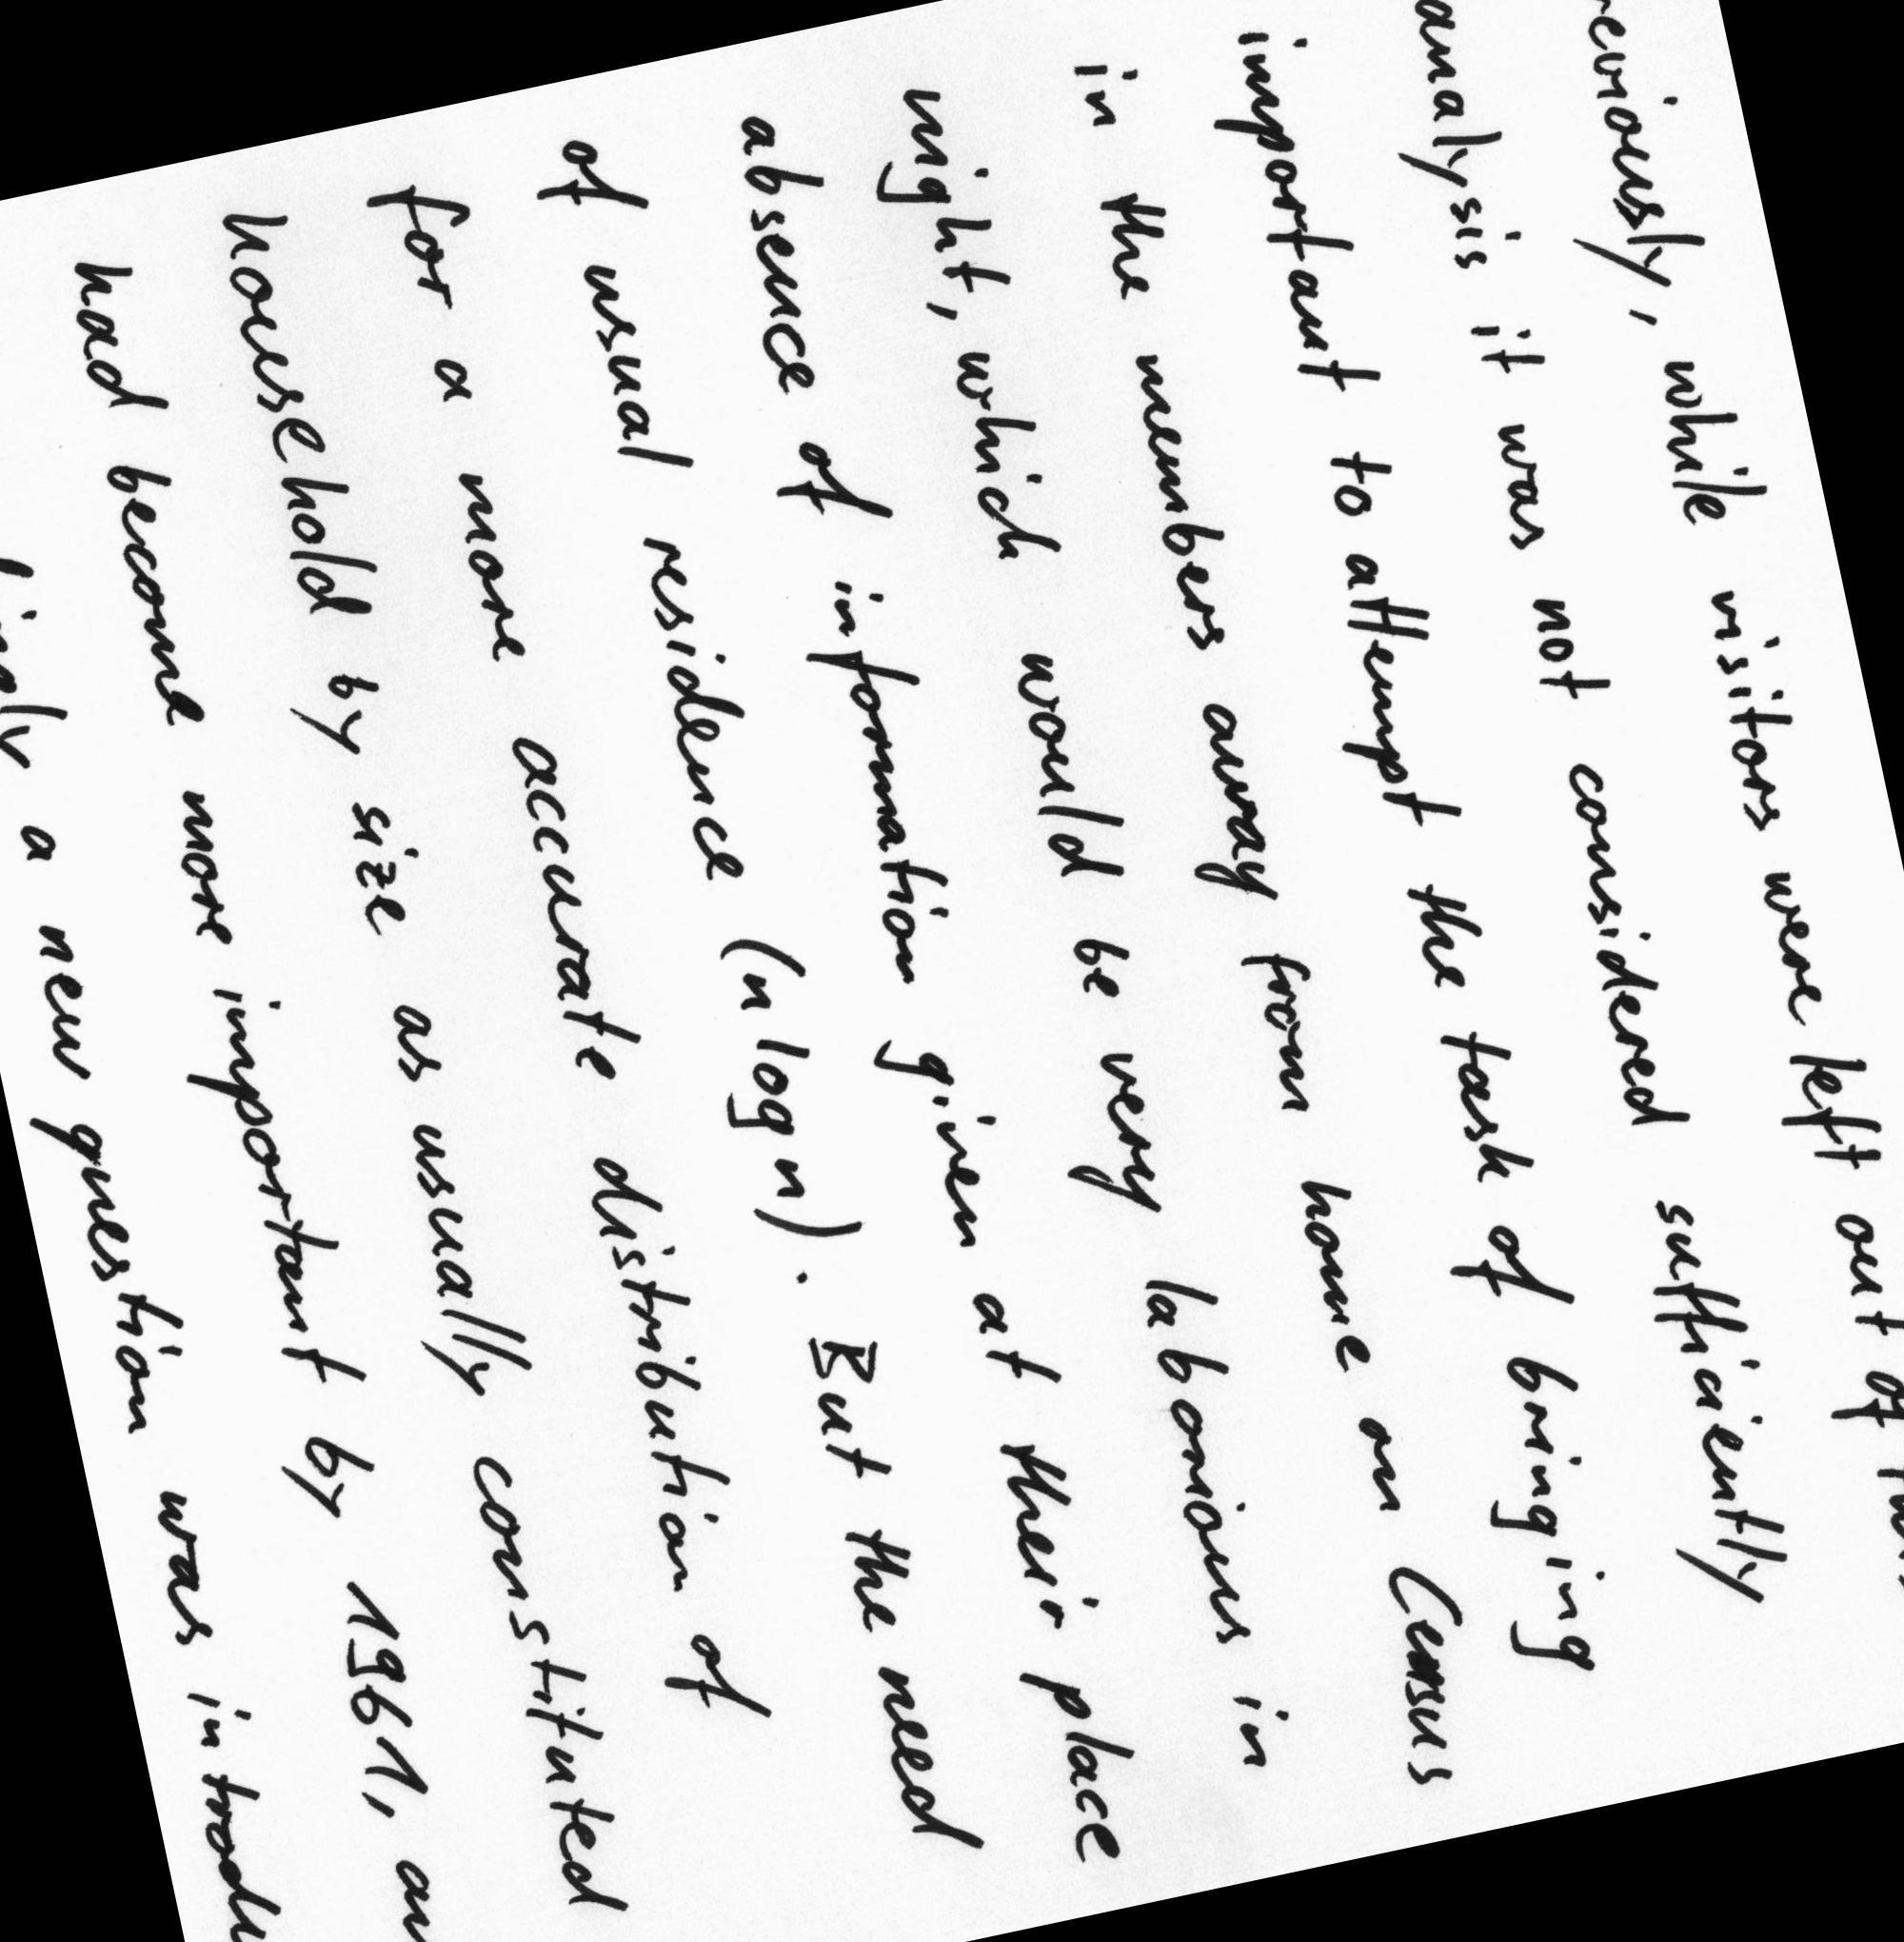 while visitors were left out of
analysis it was not considered sufficiently
important to attempt the task of bringing
in the members away from home on Census
night, which would be very laborious in
absence of information given at their place
of usual residence (n log n). But the need
for a more accurate distribution of
household by size as usually constituted
had become more important by 1961,
a new question was